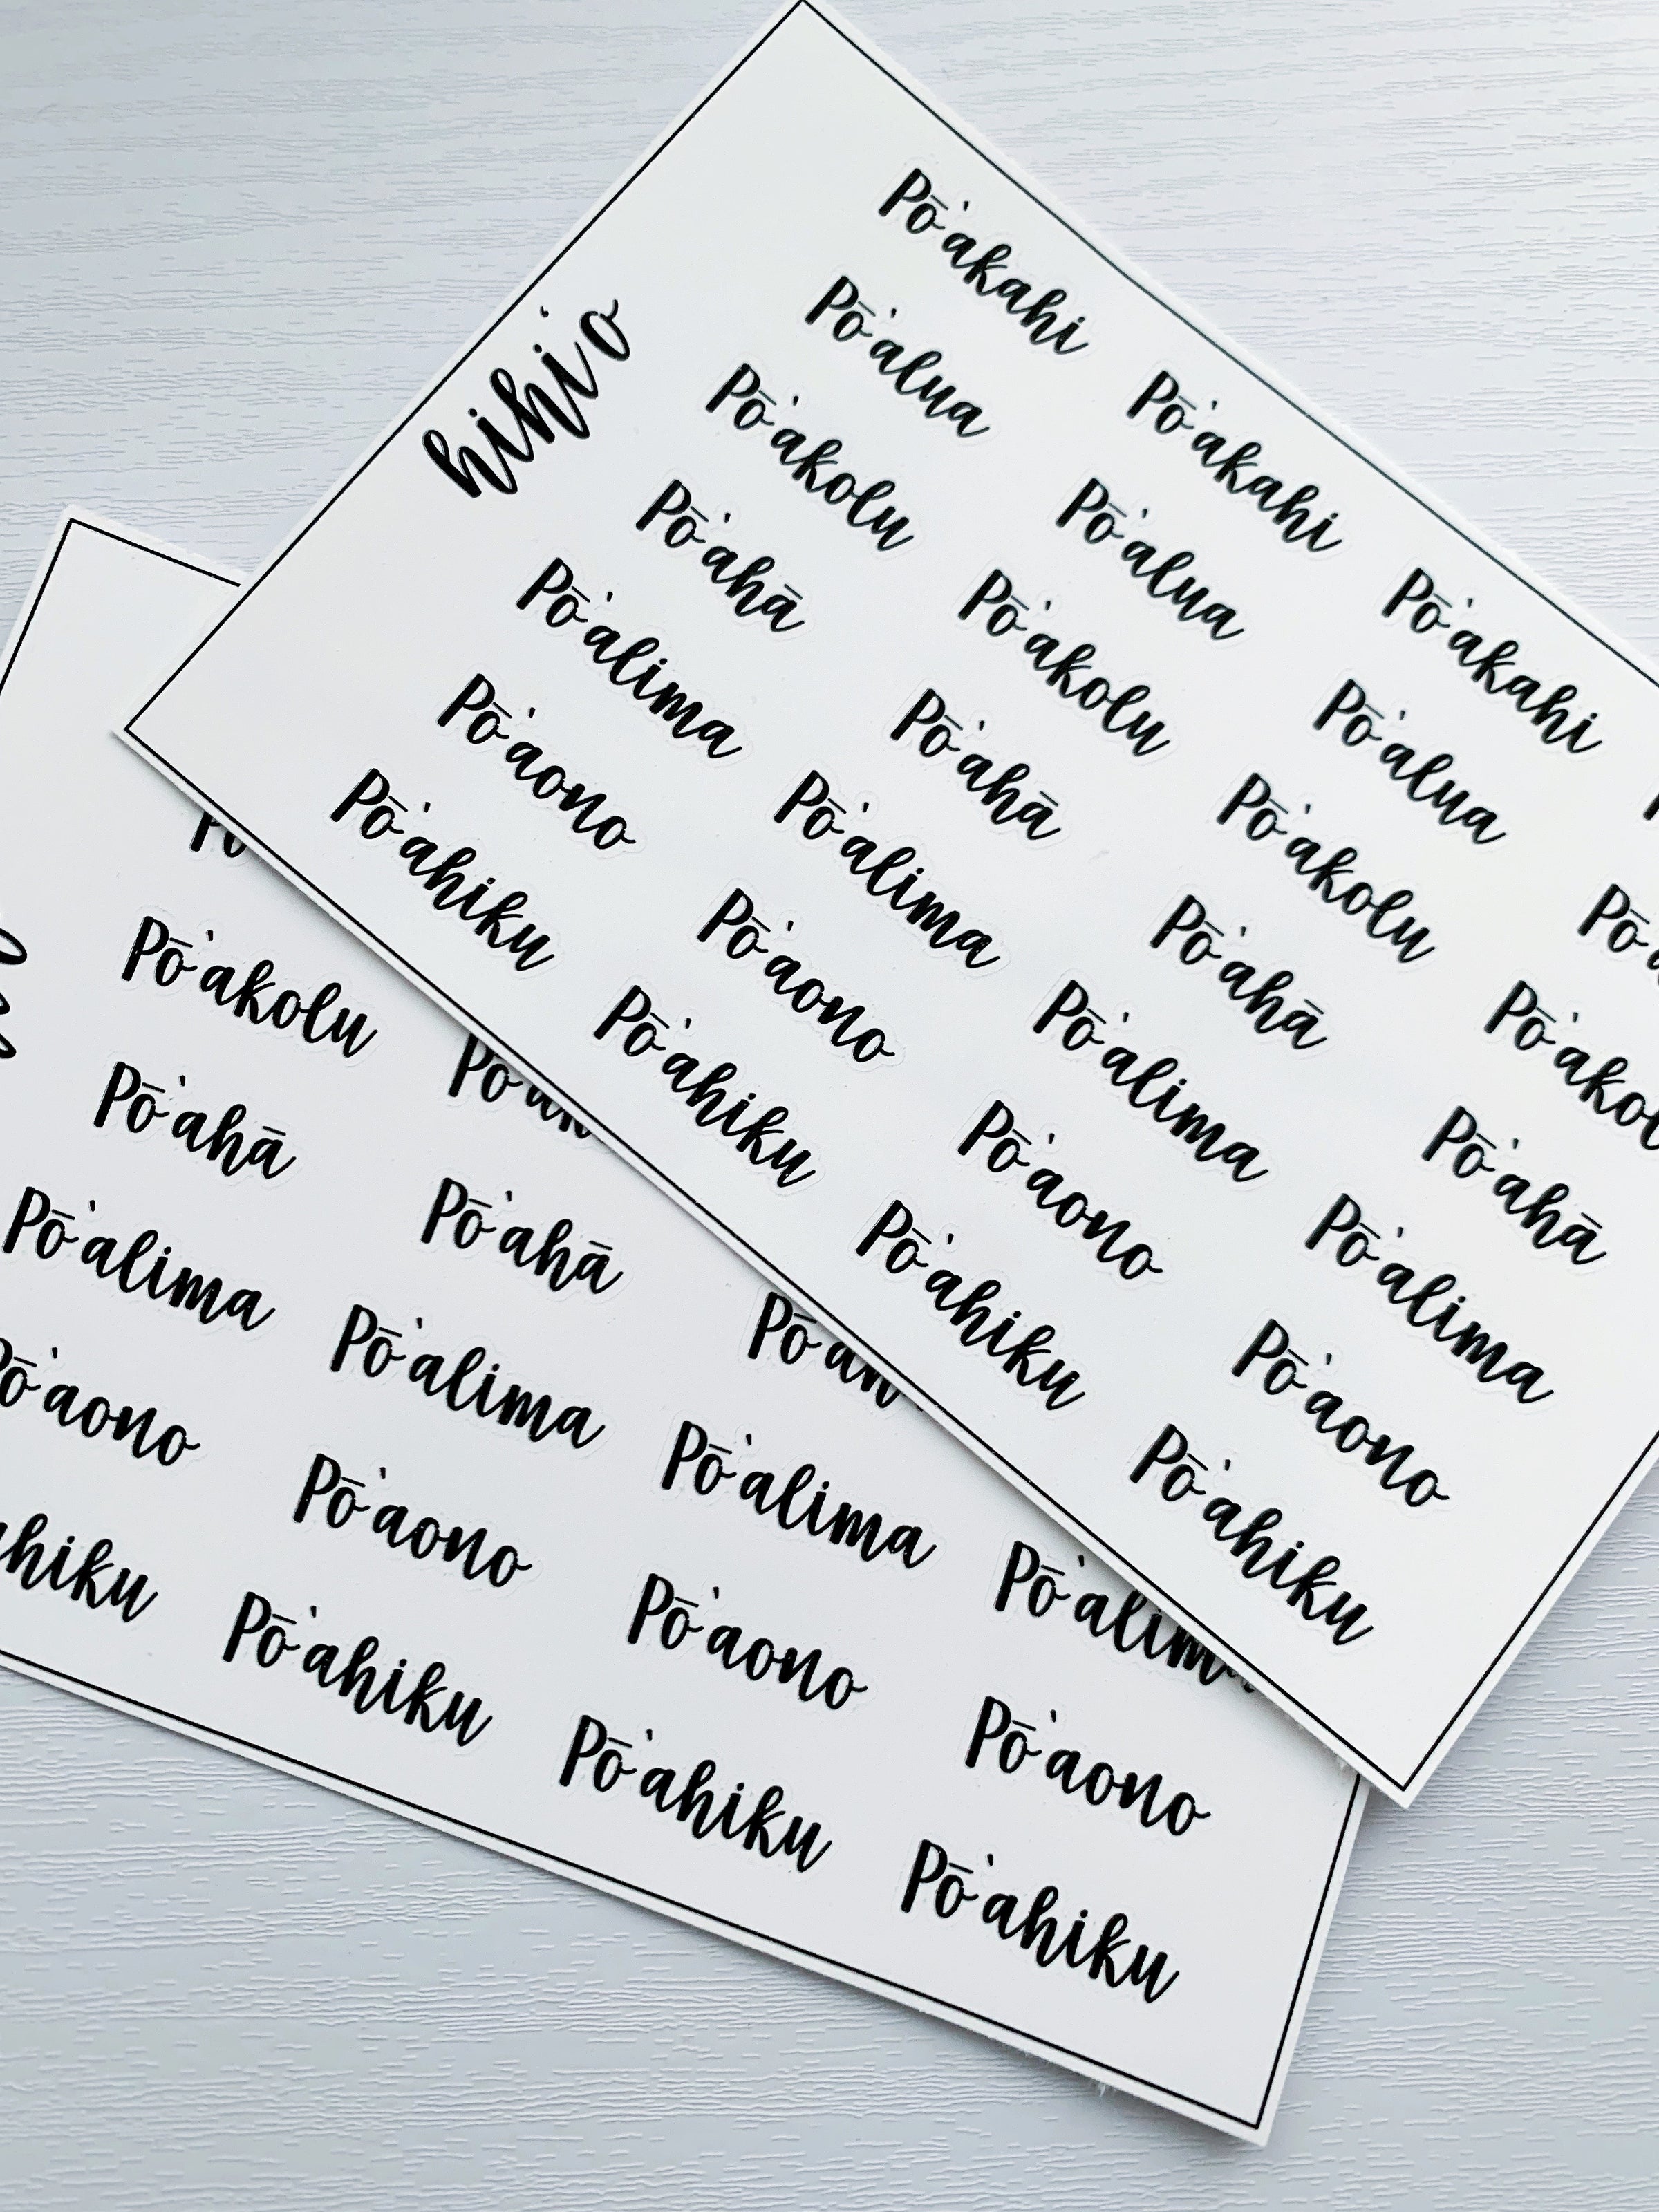 hihiʻo
Pōʻakahi Pōʻakahi Pōʻakahi
Pōʻalua Pōʻalua Pōʻalua
Pōʻakolu Pōʻakolu Pōʻakolu Pōʻakol
Pōʻahā Pōʻahā Pōʻahā Pōʻahā
Pōʻalima Pōʻalima Pōʻalima Pōʻalima
Pōʻaono Pōʻaono Pōʻaono Pōʻaono
Pōʻahiku Pōʻahiku Pōʻahiku Pōʻahiku
Pōʻakolu
Pōʻahā Pōʻahā
Pōʻalima Pōʻalima Pōʻalima Pōʻalim
ōʻaono Pōʻaono Pōʻaono Pōʻaono
ahiku Pōʻahiku Pōʻahiku Pōʻahiku